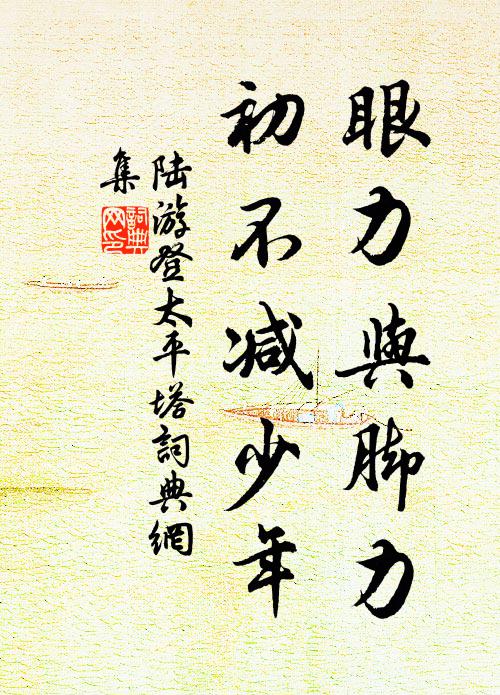 眼力與脚力
初不减少年
陆游登太平塔詞典網
集
詞典网印